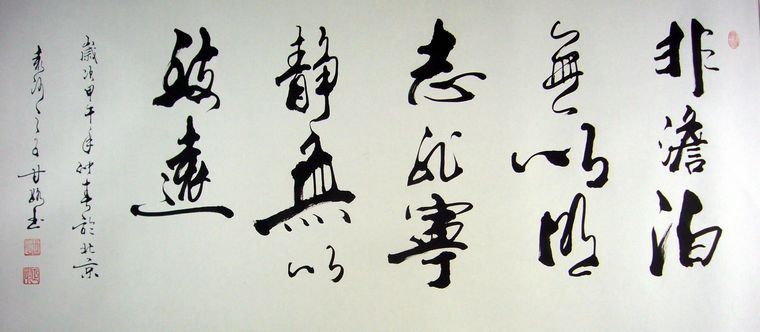 非澹泊
無以明
志非寧
静無以
致遠
歲次甲午年仲春於北京
書